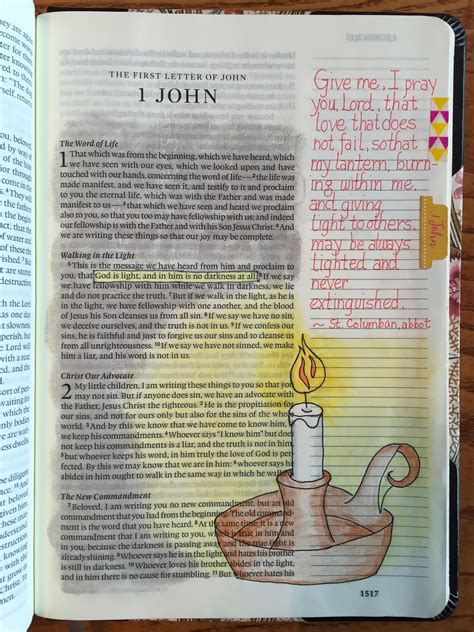 THE FIRST LETTER OF JOHN
1 JOHN
The Word of Life
1 That which was from the beginning, which we have heard, which
we have seen with our eyes, which we looked upon and have
touched with our hands, concerning the word of life— 2 the life was
made manifest, and we have seen it, and testify to it and proclaim
to you the eternal life, which was with the Father and was made
manifest to us— 3 that which we have seen and heard we proclaim
also to you, so that you too may have fellowship with us; and indeed
our fellowship is with the Father and with his Son Jesus Christ. 4 And
we are writing these things so that our joy may be complete.
Walking in the Light
5 This is the message we have heard from him and proclaim to
you, that God is light, and in him is no darkness at all. 6 If we say
we have fellowship with him while we walk in darkness, we lie
and do not practice the truth. 7 But if we walk in the light, as he is
in the light, we have fellowship with one another, and the blood
of Jesus his Son cleanses us from all sin. 8 If we say we have no sin,
we deceive ourselves, and the truth is not in us. 9 If we confess our
sins, he is faithful and just to forgive us our sins and to cleanse us
from all unrighteousness. 10 If we say we have not sinned, we make
him a liar, and his word is not in us.
Christ Our Advocate
2 My little children, I am writing these things to you so that you
may not sin. But if anyone does sin, we have an advocate with
the Father, Jesus Christ the righteous. 2 He is the propitiation for
our sins, and not for ours only but also for the sins of the whole
world. 3 And by this we know that we have come to know him, if we
keep his commandments. 4 Whoever says "I know him" but does not
keep his commandments is a liar, and the truth is not in him,
5 but whoever keeps his word, in him truly the love of God is per-
fected. By this we may know that we are in him: 6 whoever says he
abides in him ought to walk in the same way in which he walked.
The New Commandment
7 Beloved, I am writing you no new commandment, but an old
commandment that you had from the beginning. The old command-
ment is the word that you have heard. 8 At the same time, it is a new
commandment that I am writing to you, which is true in him and
in you, because the darkness is passing away and the true light is
already shining. 9 Whoever says he is in the light and hates his brother
is still in darkness. 10 Whoever loves his brother abides in the light,
and in him there is no cause for stumbling. 11 But whoever hates his
1517
Give me, I pray
you, Lord, that
love that does
not fail, so that
my lantern, burn-
ing within me,
and giving
light to others,
may be always
lighted and
never
extinguished.
~ St. Columban, abbot
John